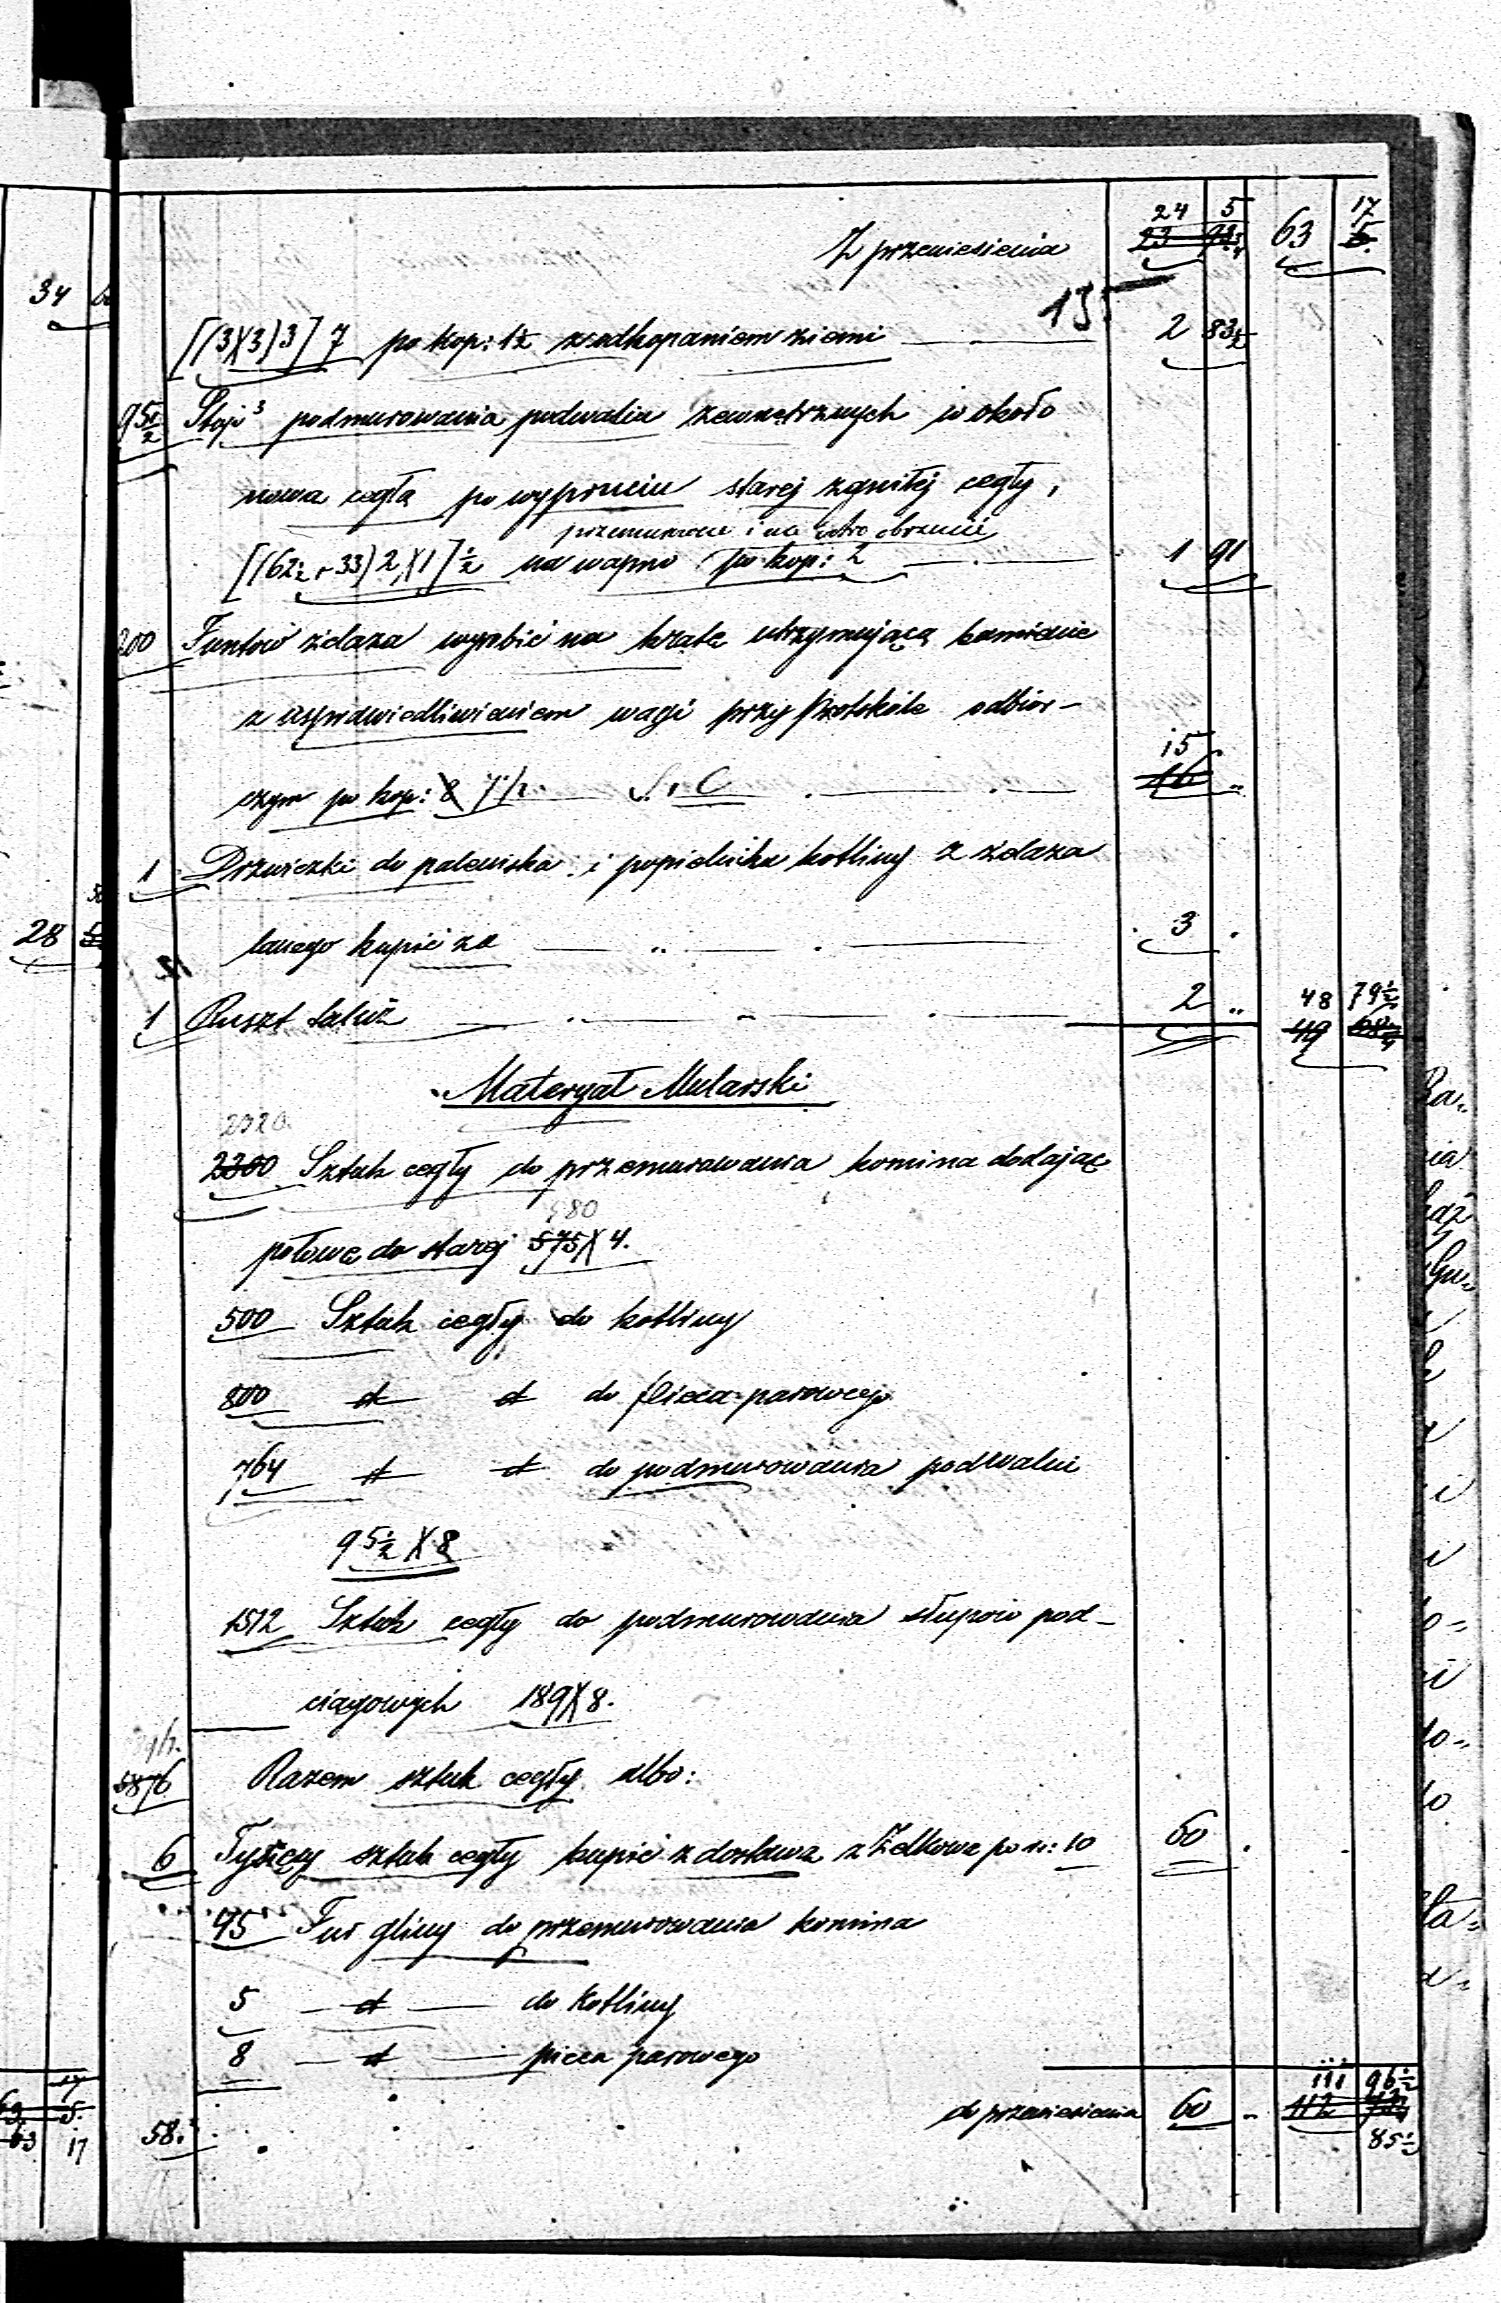 Z przeniesienia 24 5 63 17
23 93¾ 5
195
[(3X3)3]7 po kop: 1½ z odkopaniem ziemi 2 83½
95½ Stóp³ podmurowania podwalin zewnętrznych w około
nowa cegła po wypruciu starej zgniłej cegły,
przemurowane i na ostro obrzucić
[(62½+33)2X1]½ na wapno po kop: 2 1 91
200 Funtów żelaza wyrobić na kratę utrzymującą kamienie
z usprawiedliwieniem wagi przy Protokole odbior-
15
czym po kop: 8 7½ 16 „
1 Drzwiczki do paleniska i popielnika kotliny z żelaza
lanego kupić za 3 .
1 Ruszt 2 „ 48 79½
49
Materyał Mularski
2320
2300 Sztuk cegły do przemurowania komina dodając
580
połowę do starej 575X4.
500 Sztuk cegły do kotliny
800 d d do pieca parowego
764 d d do podmurowania podwalin
95½X8
1512 Sztuk cegły do podmurowania słupów pod-
ciągowych 189X8.
5876 Razem sztuk cegły albo:
6 Tysięcy sztuk cegły kupić z dostawą z Żelkowa po rs: 10 60 .
45 Fur gliny do przemurowania komina
5 d do kotliny
8 d pieca parowego
111 96½
58. do przeniesienia 60 „ 112
85½
34
28
63 17